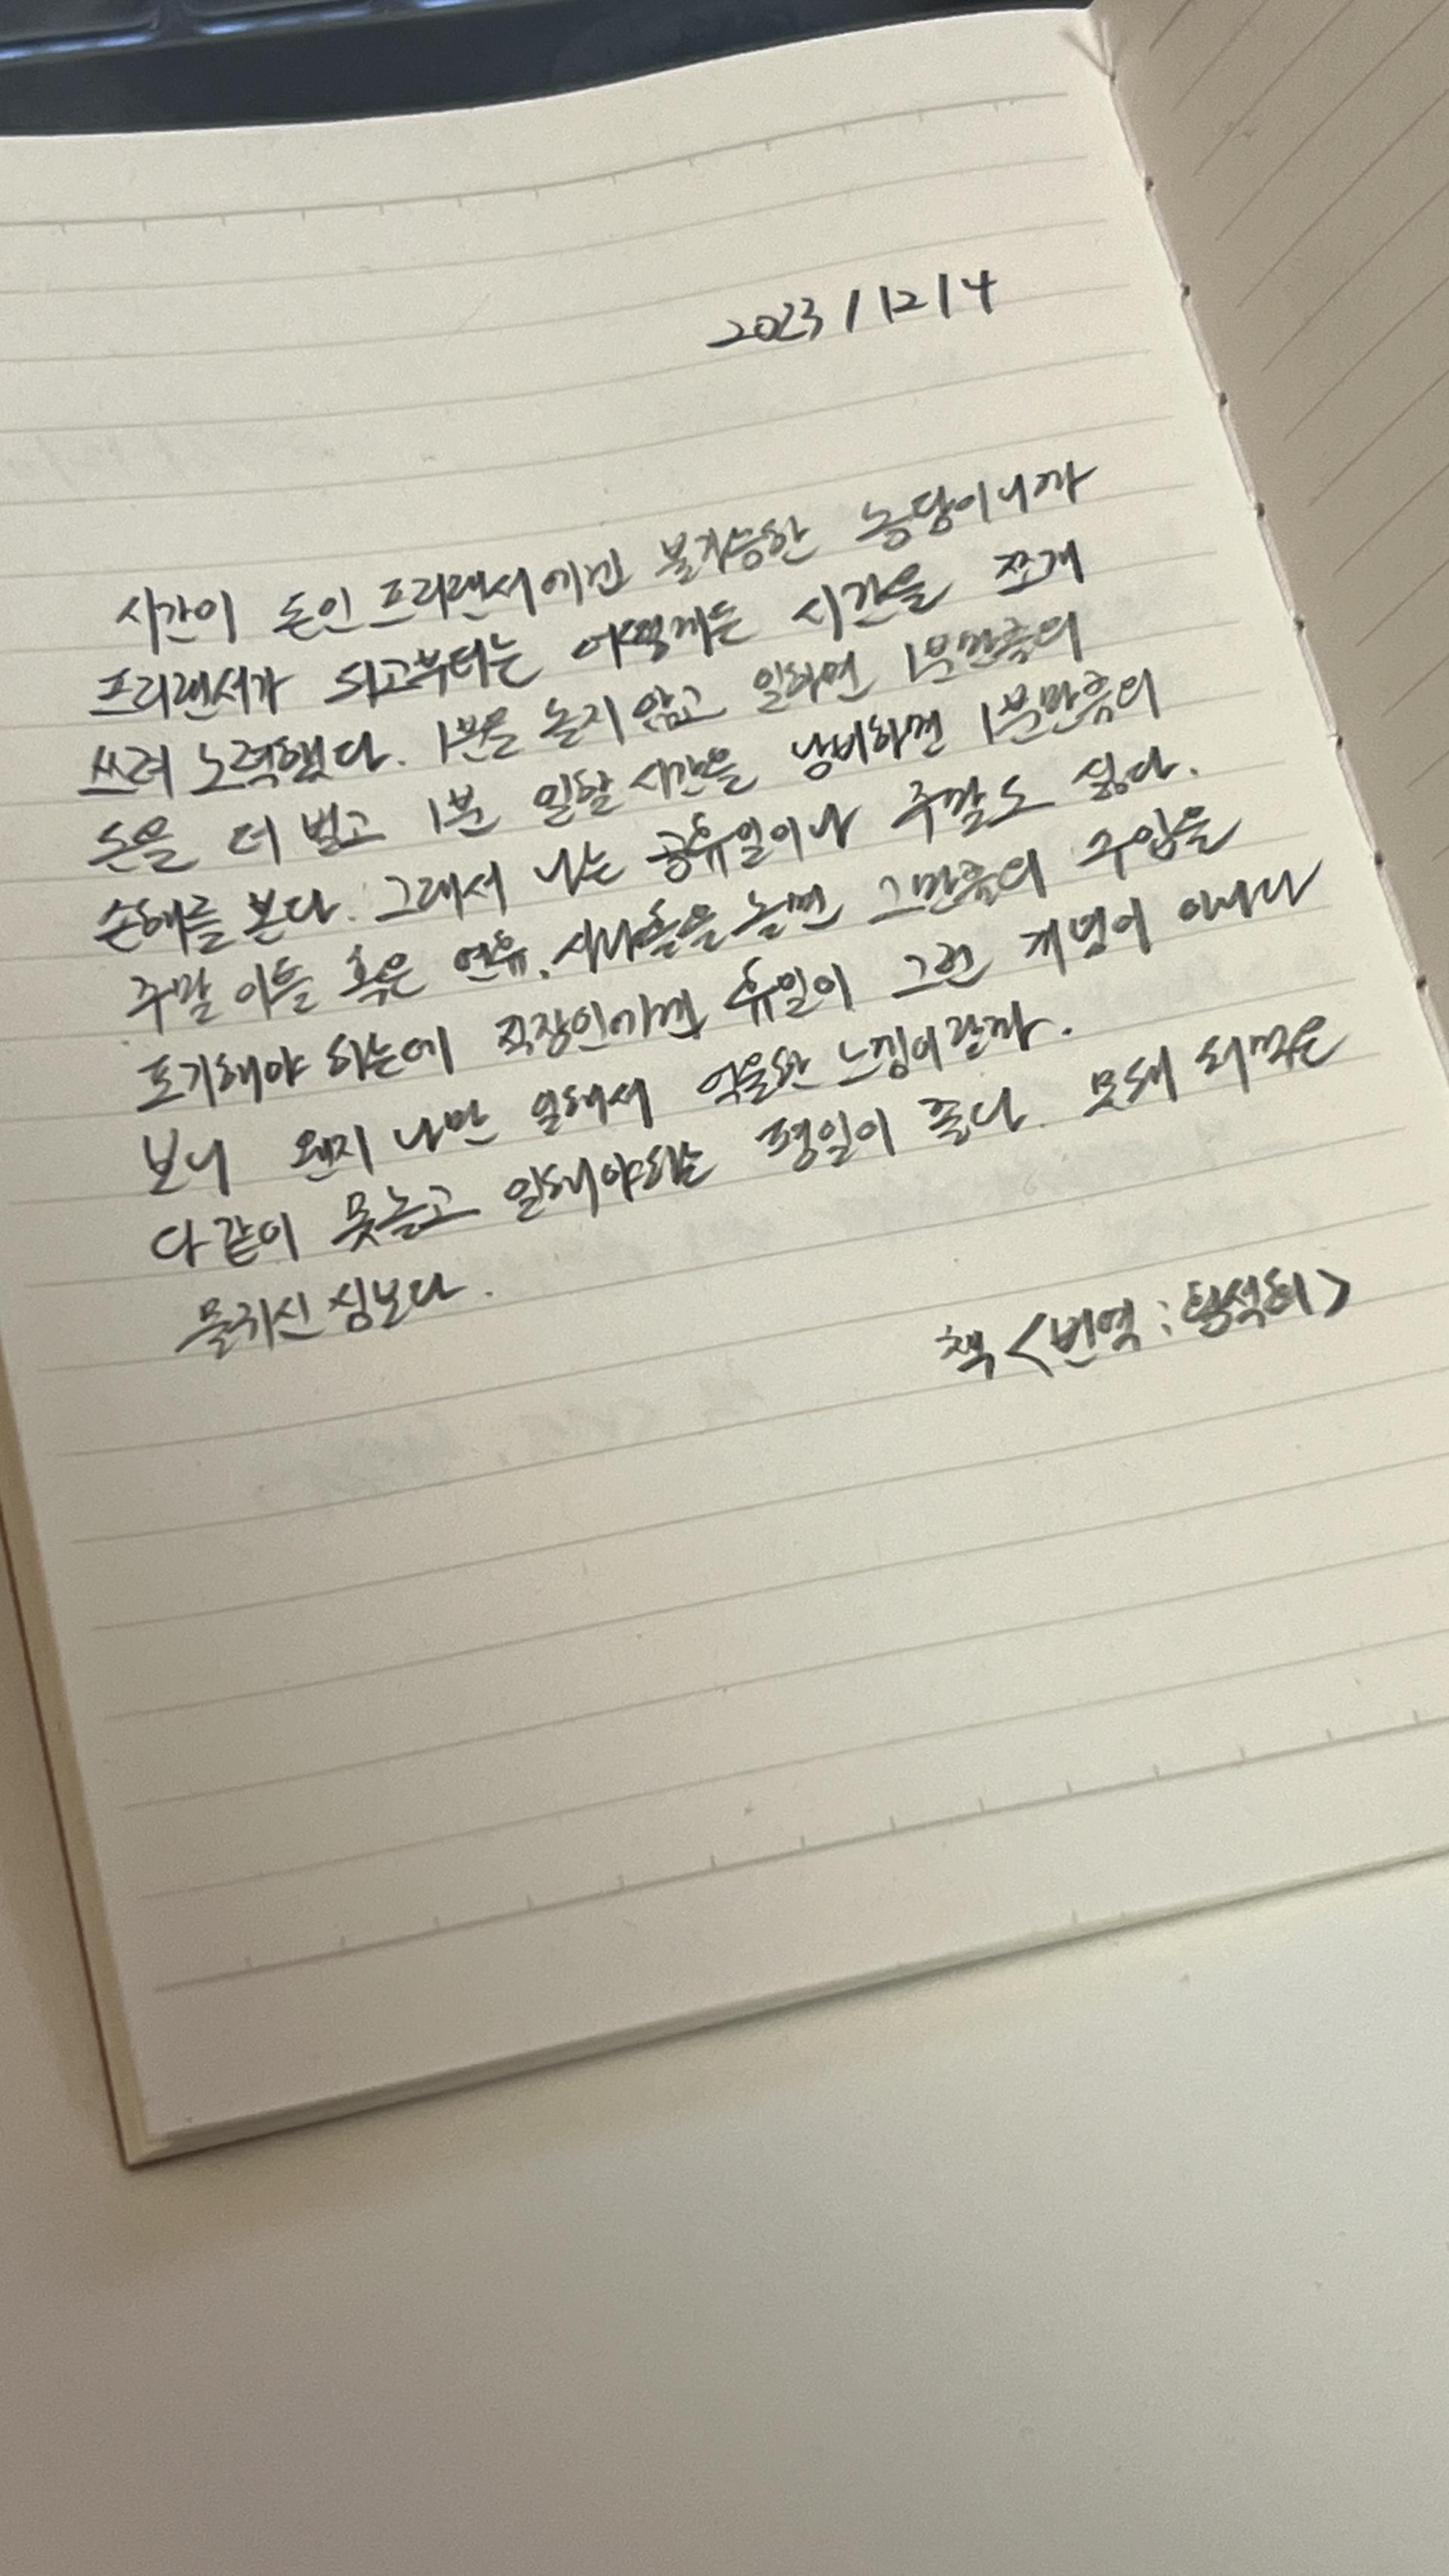 2023/12/4
시간이 돈인 프리랜서에겐 불가능한 농담이니까
프리랜서가 되고부터는 어떻게든 시간을 쪼개
쓰려 노력했다. 1분을 놀지 않고 일하면 1분만큼의
돈을 더 벌고 1분 일할 시간을 낭비하면 1분만큼의
손해를 본다. 그래서 나는 공휴일이나 주말도 싫다.
주말 이틀 혹은 연휴, 사나흘을 놀면 그만큼의 수입을
포기해야 하는데 직장인에겐 휴일이 그런 개념이 아니다
보니 왠지 나만 일해서 억울한 느낌이랄까.
다 같이 못놀고 일해야하는 평일이 좋다. 못돼 처먹은
물귀신 심보다.
책 <번역 : 황석희>